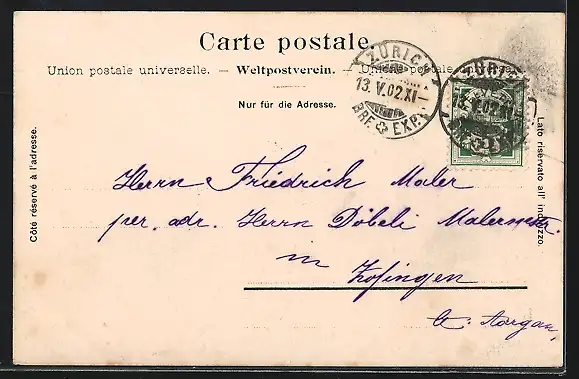 Carte postale.
Union postale universelle. — Weltpostverein. — Unione postale
Nur für die Adresse.
Côté réservé à l'adresse.
Lato riservato all' indirizzo.
ZÜRICH
13.V.02.XI—
BRF. EXP.
ZÜRICH
13.V.02.
Herrn Friedrich Maler
per. adr. Herrn Döbeli Malermstr.
in Zofingen
Ct. Aargau